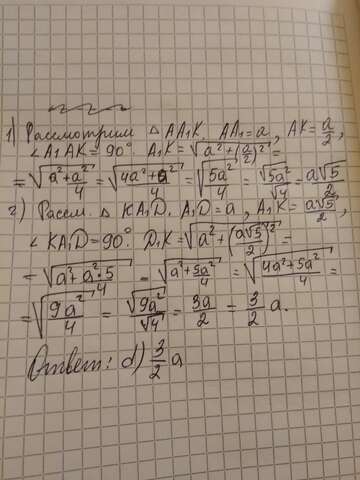 1) Рассмотрим △ AA₁K. AA₁ = a, AK = a/2,
∠A₁AK = 90°. A₁K = √(a² + (a/2)²) =
= √(a² + a²/4) = √((4a² + a²)/4) = √(5a²/4) = √(5a²)/√4 = a√5/2
2) Рассм. △ KA₁D. A₁D = a, A₁K = a√5/2,
∠ KA₁D = 90°. D₁K = √(a² + (a√5/2)²) =
= √(a² + a²·5/4) = √(a² + 5a²/4) = √((4a² + 5a²)/4) =
= √(9a²/4) = √(9a²)/√4 = 3a/2 = 3/2 a.
Ответ: d) 3/2 a